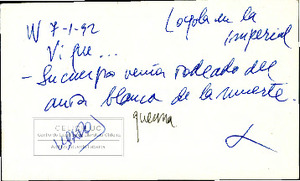 W 7-1-92
Loyola en la
Imperial
Vi que...
- Su cuerpo venía rodeado del
aura blanca de la muerte.
quema